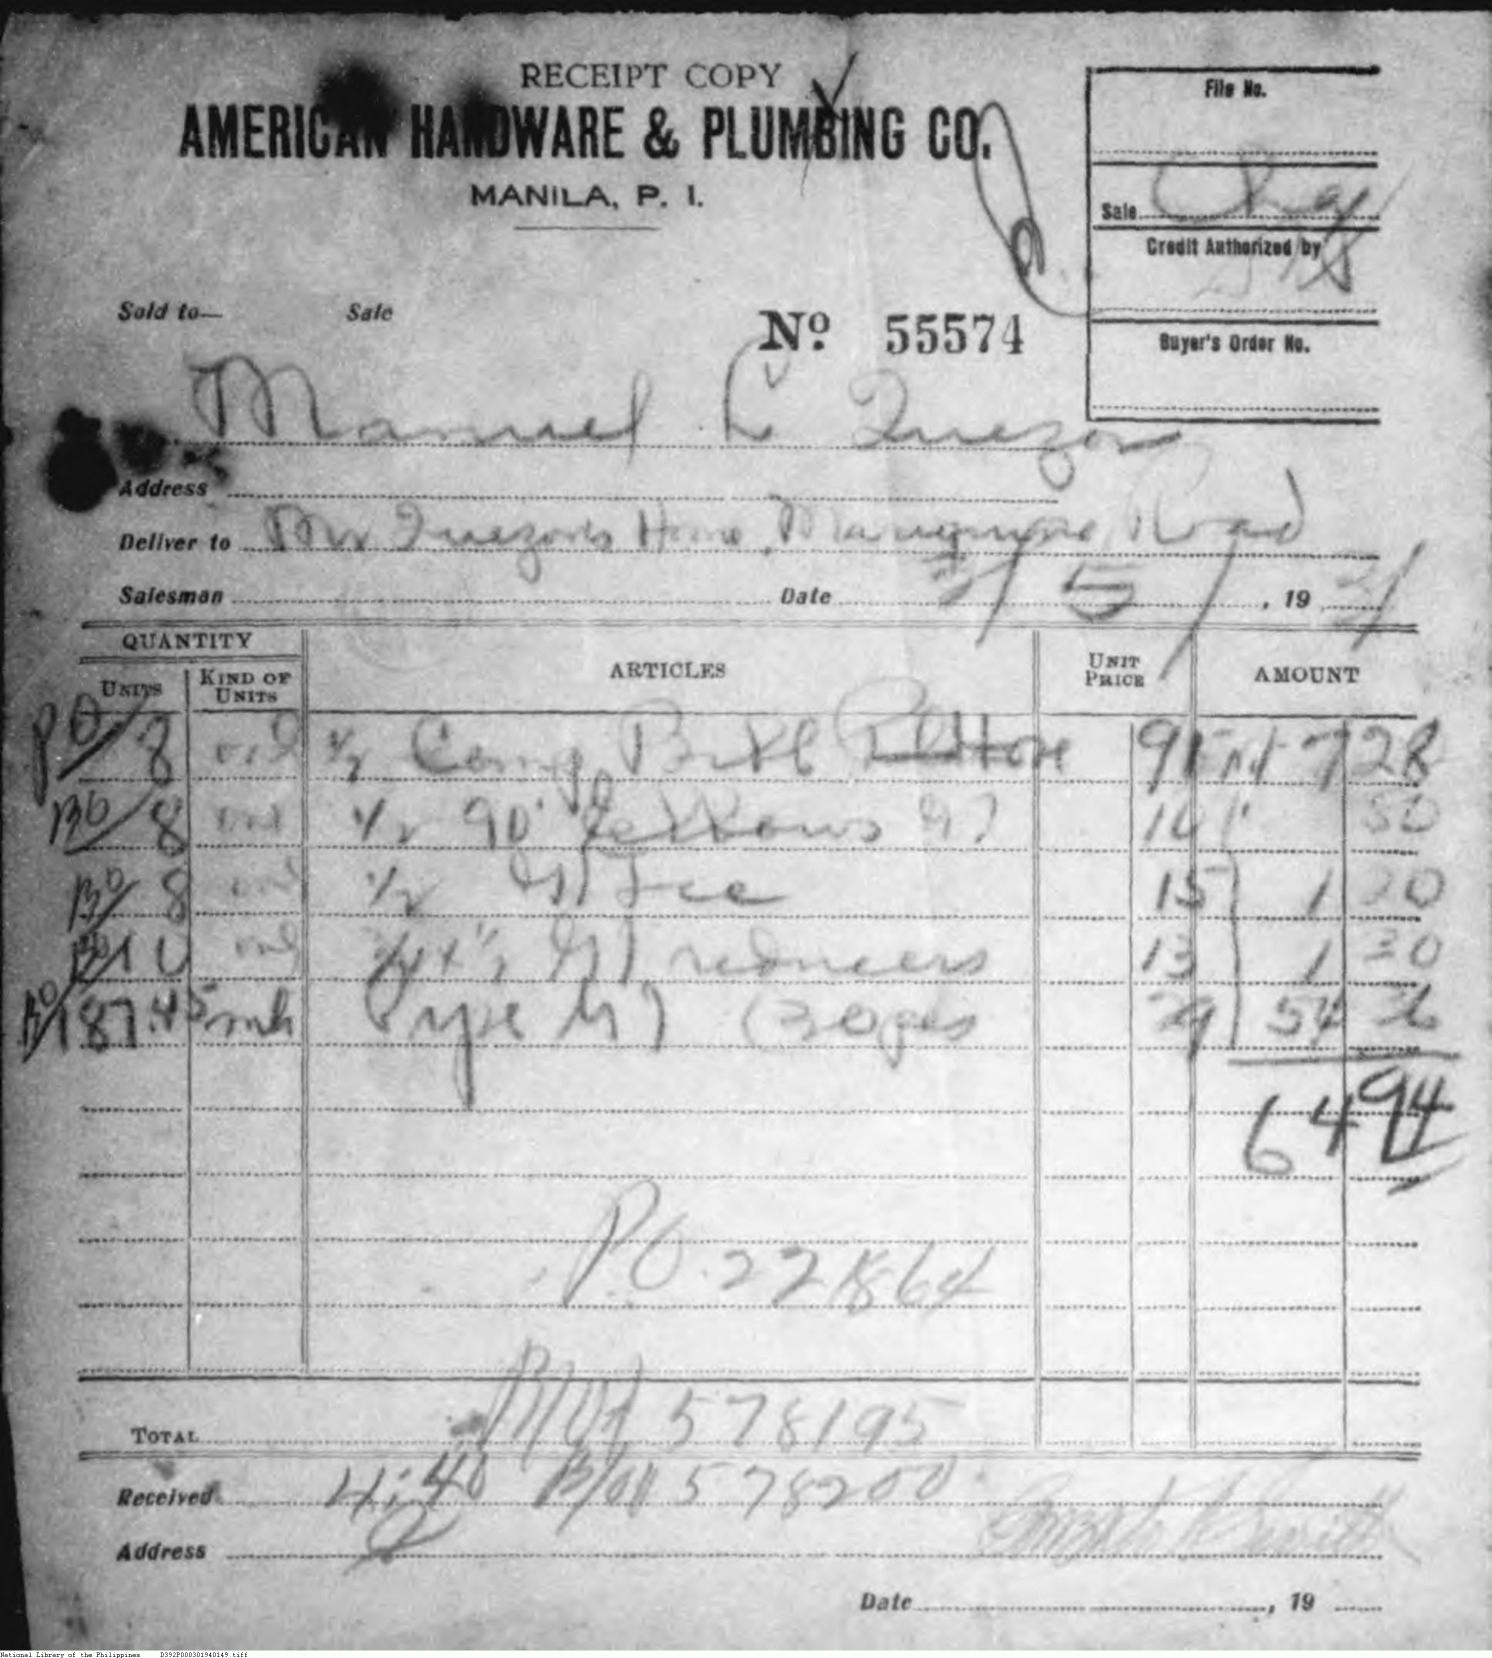 RECEIPT COPY
AMERICAN HARDWARE & PLUMBING CO.
MANILA, P. I.
File No.
Sale Chg
Credit Authorized by
Buyer's Order No.
Sold to— Sale
No. 55574
Manuel L Quezon
Address
Deliver to Mr Quezon's Home, Road
Salesman Date 3/5/, 1931
QUANTITY
UNITS KIND OF UNITS ARTICLES UNIT PRICE AMOUNT
8 only 1/2 Comp Bibb 91 7 28
BO/ 8 only 1/2 90° Elbows GI 10 80
BO/ 8 only 1/2 GI Tee 15 1 20
BO/ 10 only 3/4 x 1/2 GI reducers 13 1 30
BO/ 187.45 Pipe GI (30 pcs 29 54 36
64 94
PO 22864
TOTAL 578195
Received 4:40 578200
Address
Date , 19
National Library of the Philippines D392P000301940149.tiff